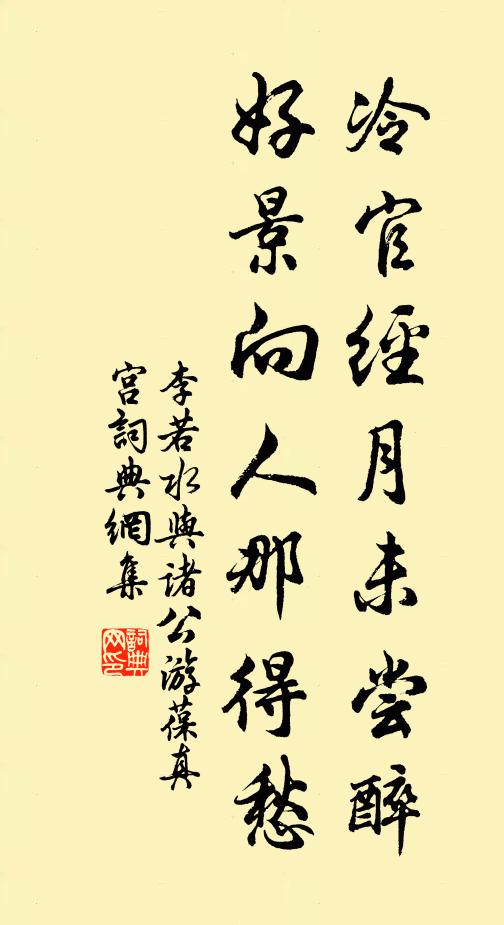 冷官經月未尝醉
好景向人那得愁
李若水與诸公游葆真
宫詞典網集
詞典网印